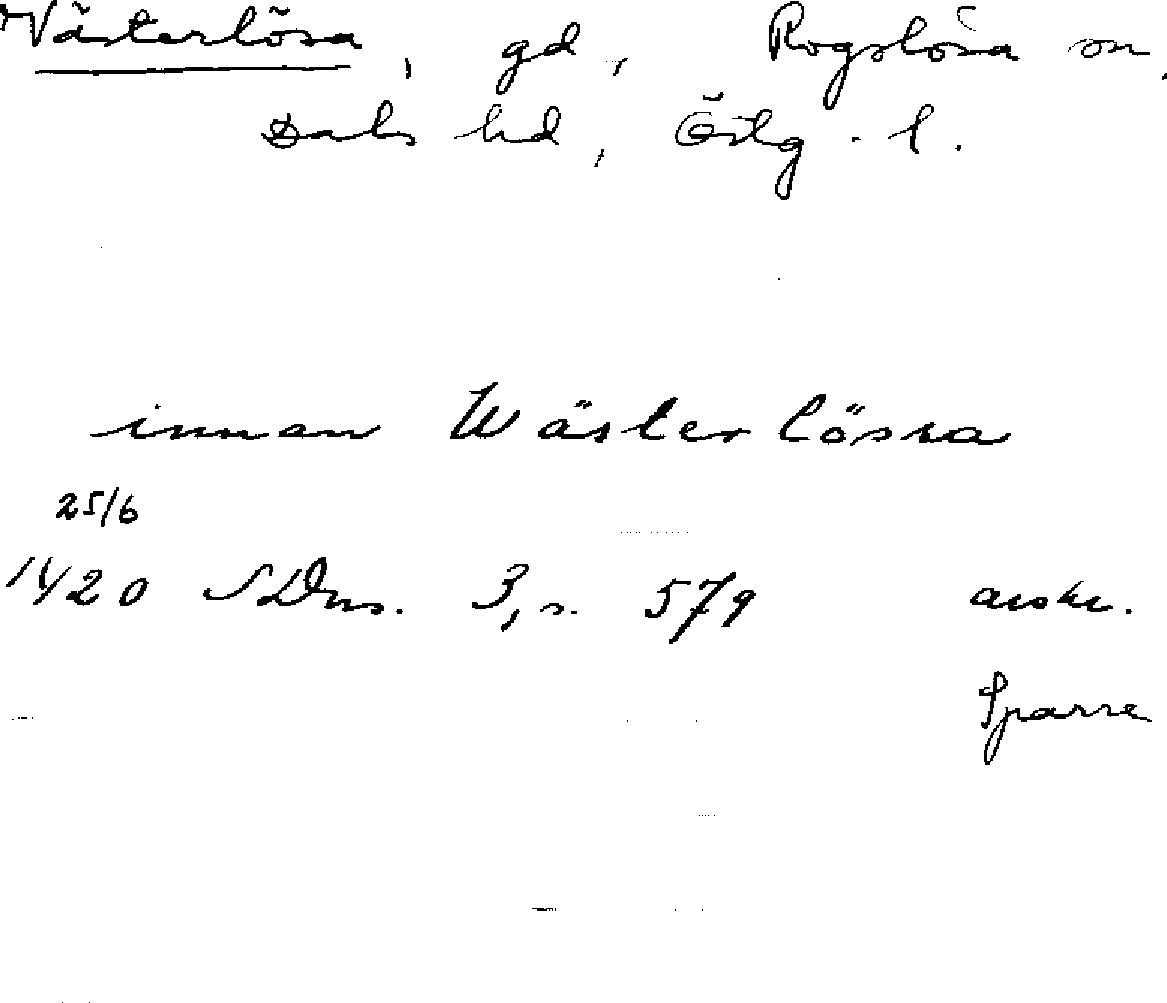 Västerlösa, gd, Rogslösa sn.
Dals hd, Östg. l.
innan Wästerlössa
25/6
1420 SDns. 3, s. 579 avskr.
Sparre